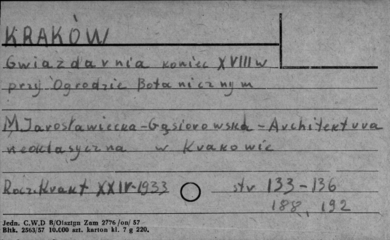 KRAKÓW
Gwiazdarnia koniec XVIII w
przy Ogrodzie Botanicznym
M.Jarosławiecka-Gąsiorowska-Architektura
neoklasyczna w Krakowie
Rocz.Krak XXIV-1933 str 133-136
188, 192
Jedn. C.W.D B/Olsztyn Zam 2776 /on/ 57
Bltk. 2563/57 10.000 szt. karton kl. 7 g 220.